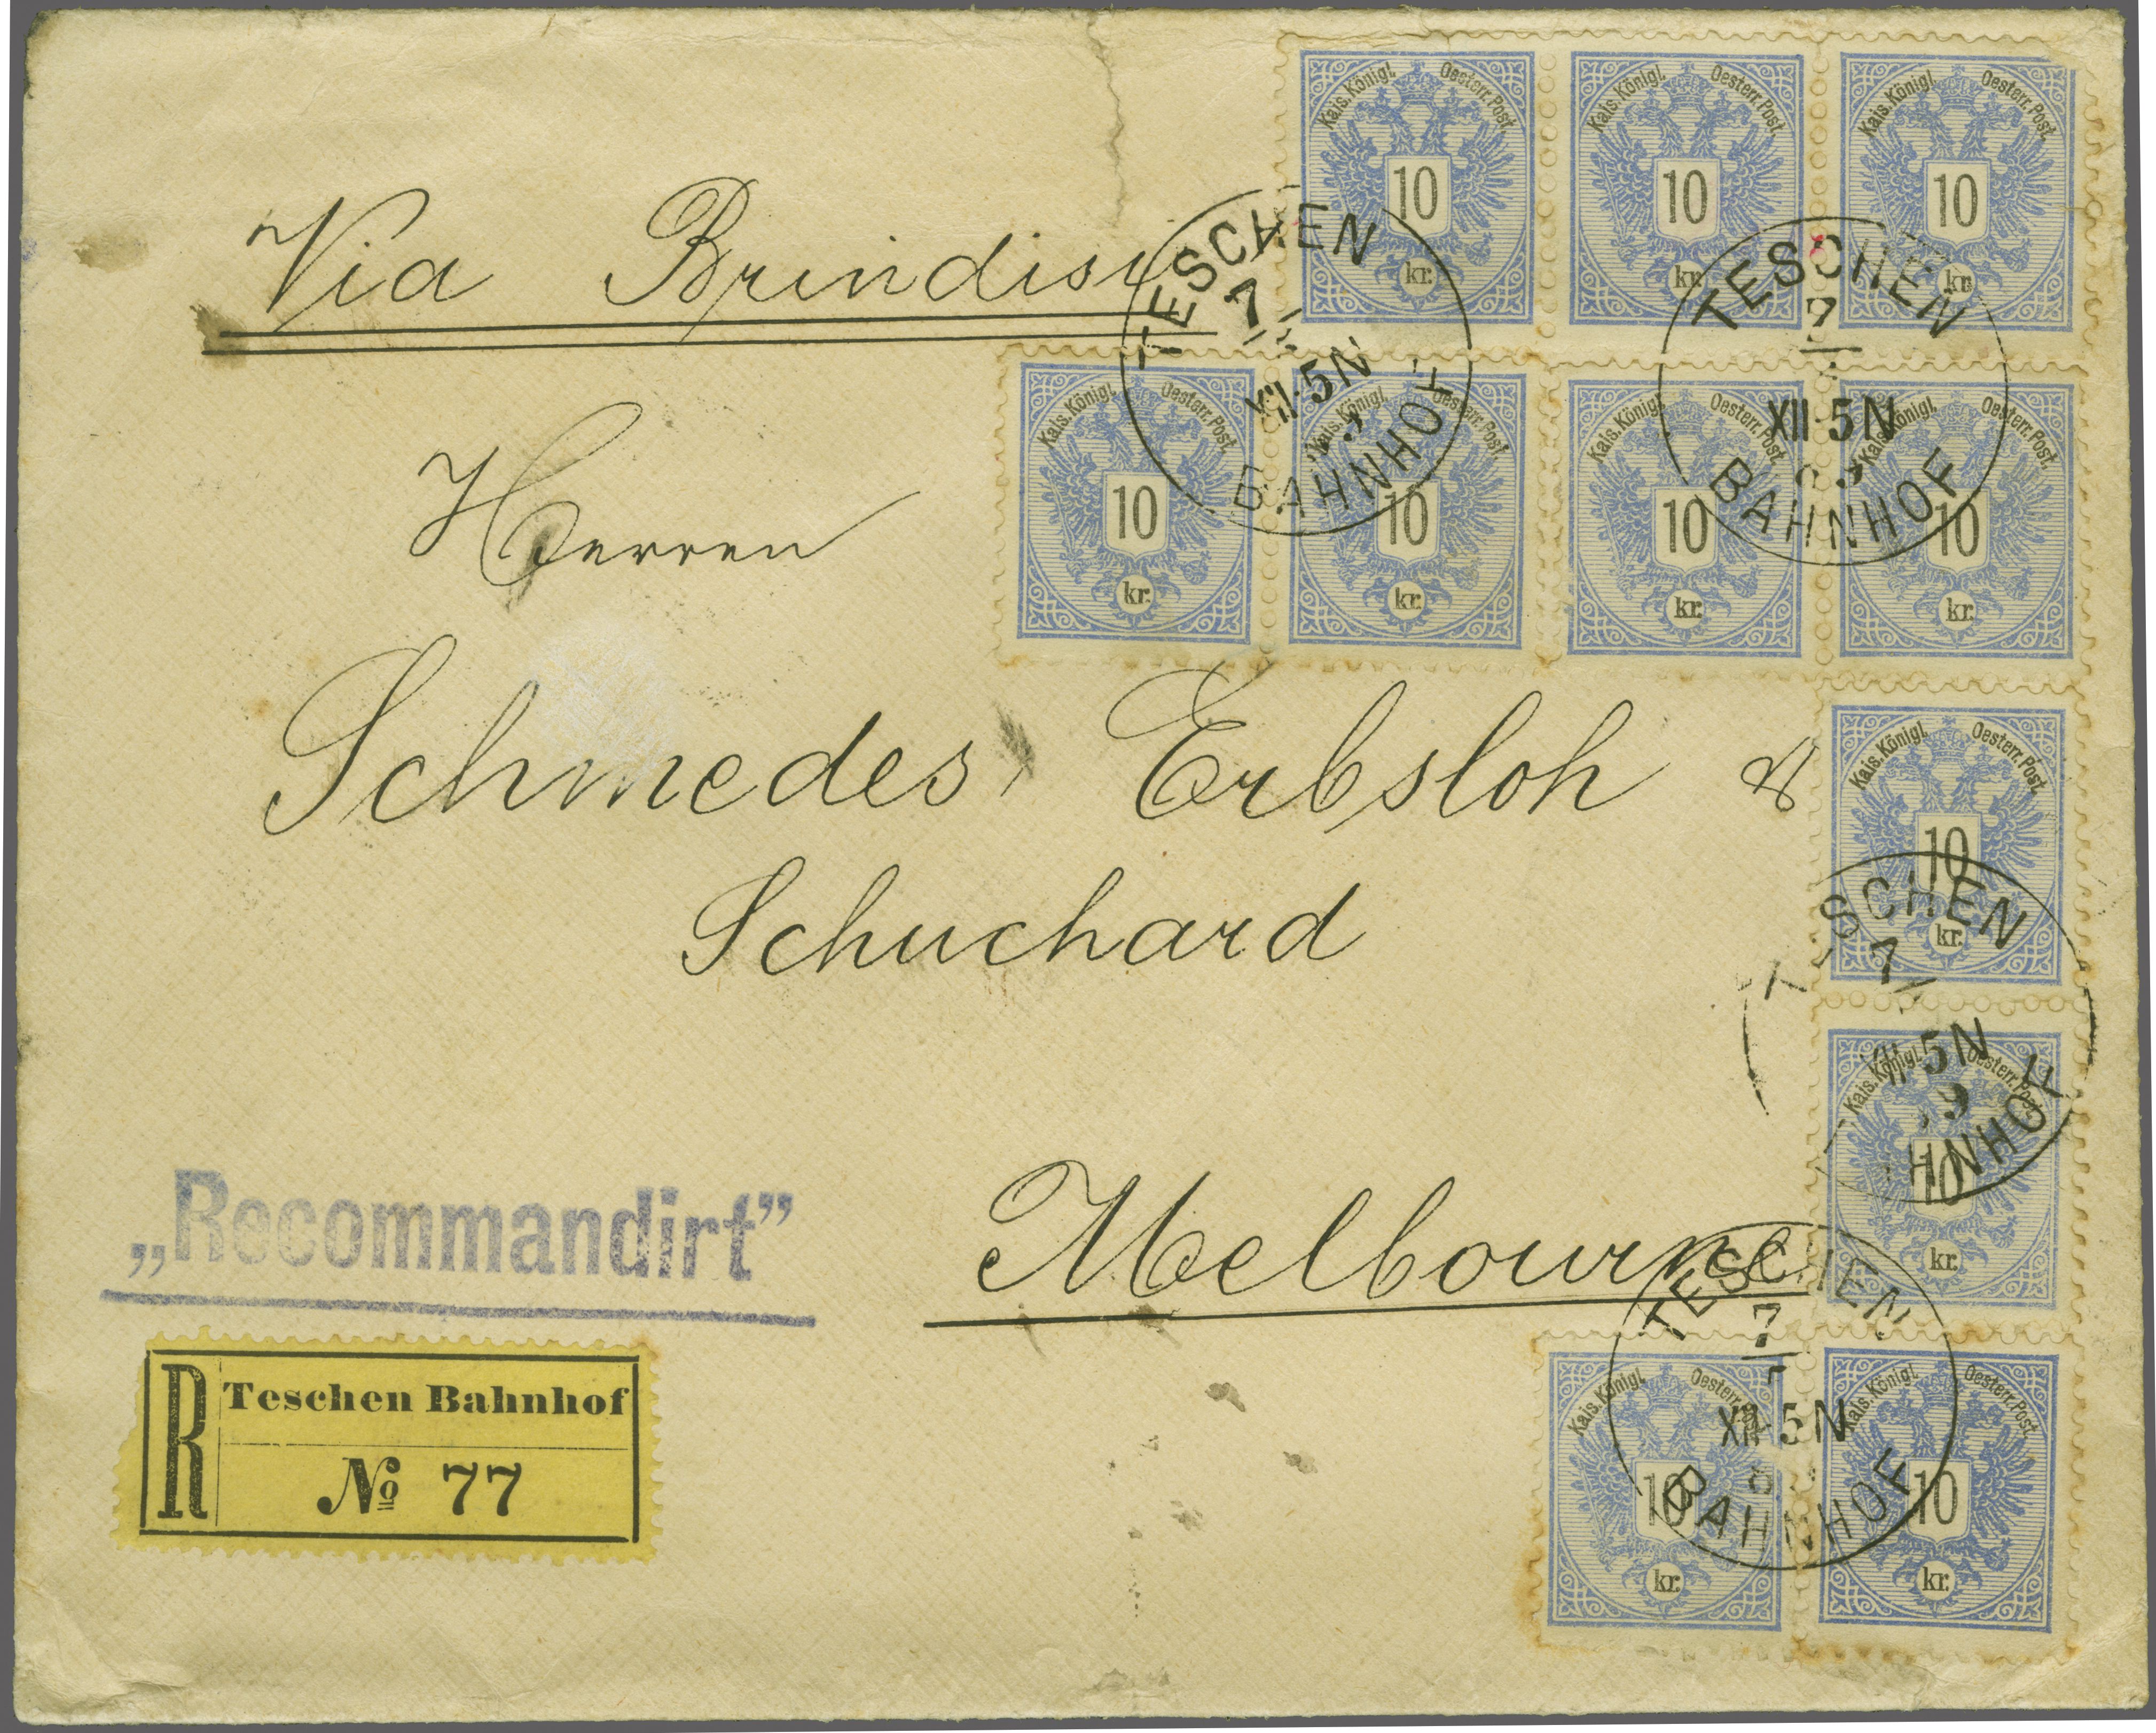 Via Brindisi
Herren
Schmedes, Erbsloh &
Schuchard
Melbourne
„Recommandirt”
R
Teschen Bahnhof
No 77
Kais. Königl. Oesterr. Post.
10
kr.
Kais. Königl. Oesterr. Post.
10
kr.
Kais. Königl. Oesterr. Post.
10
kr.
Kais. Königl. Oesterr. Post.
10
kr.
Kais. Königl. Oesterr. Post.
10
kr.
Kais. Königl. Oesterr. Post.
10
kr.
Kais. Königl. Oesterr. Post.
10
kr.
Kais. Königl. Oesterr. Post.
10
kr.
Kais. Königl. Oesterr. Post.
10
kr.
Kais. Königl. Oesterr. Post.
10
kr.
Kais. Königl. Oesterr. Post.
10
kr.
TESCHEN
7
XII·5N
BAHNHOF
TESCHEN
7
XII·5N
BAHNHOF
TESCHEN
7
XII·5N
BAHNHOF
TESCHEN
7
XII·5N
BAHNHOF